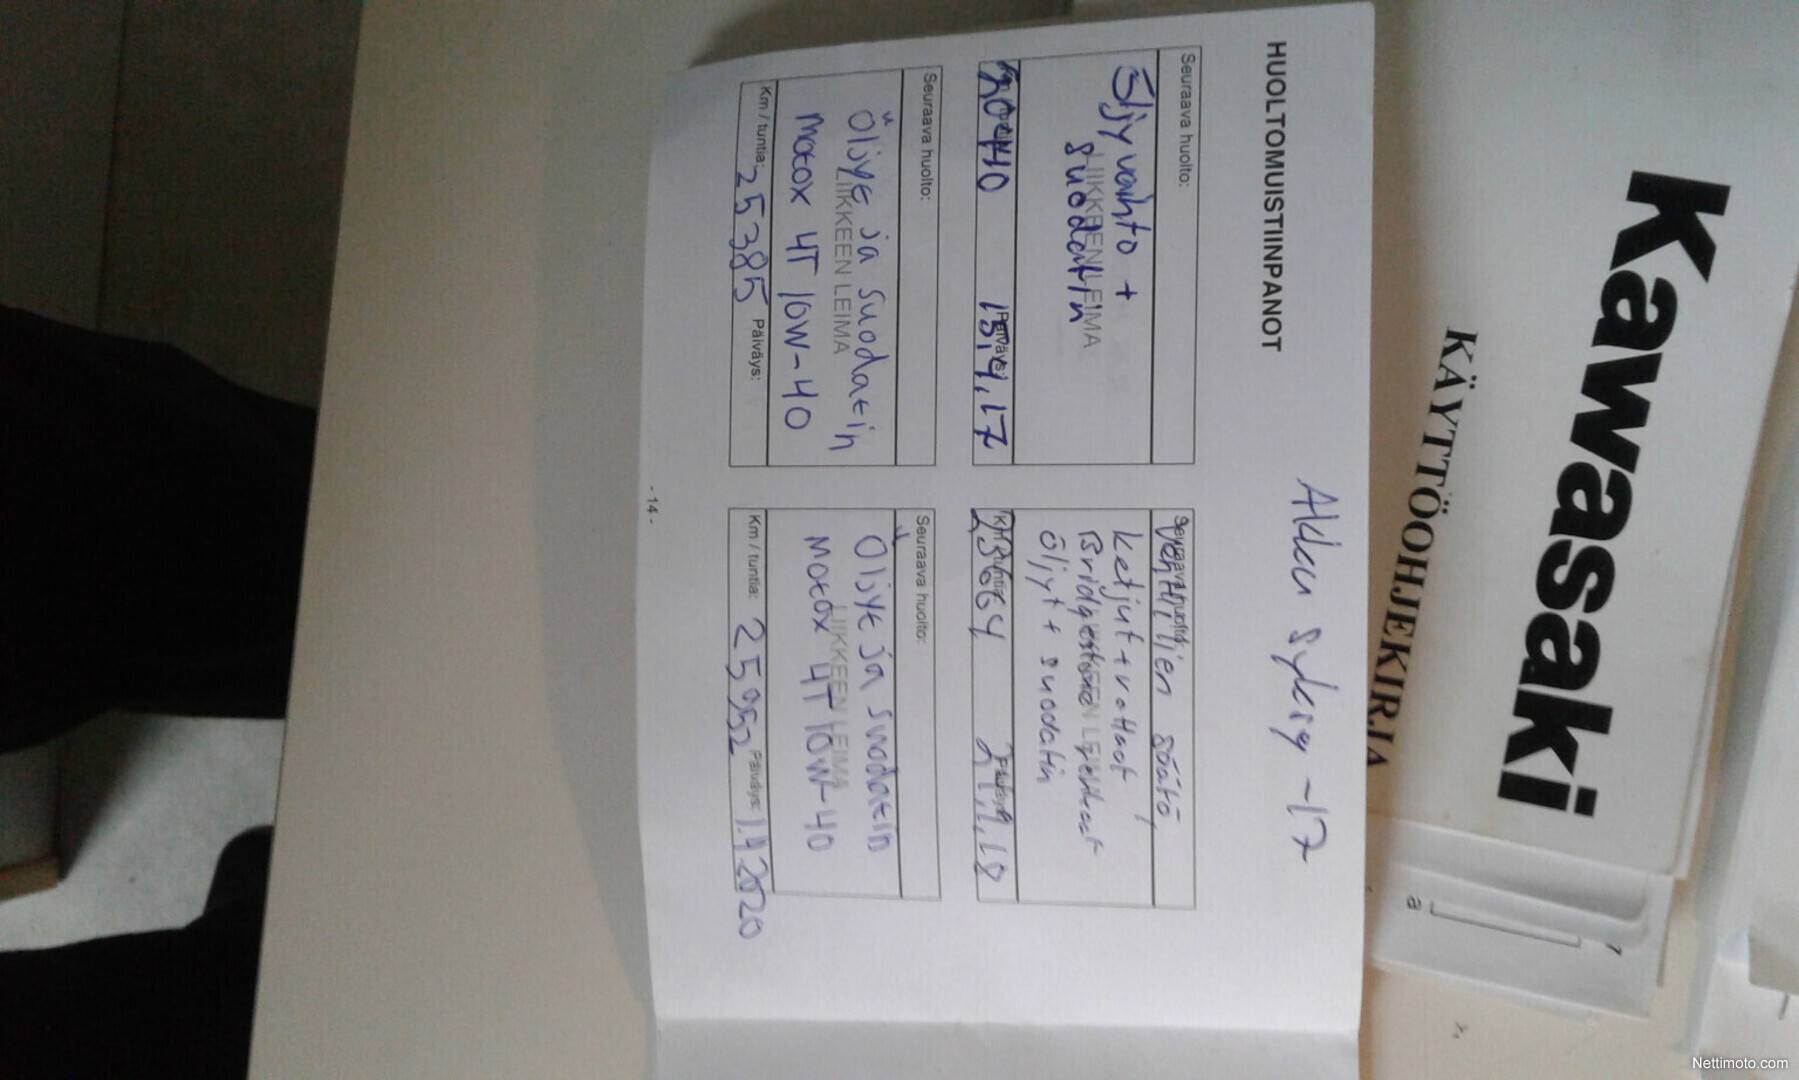 Kawasaki
KÄYTTÖOHJEKIRJA
HUOLTOMUISTIINPANOT
Akku syksy -17
Seuraava huolto:
Öljyvaihto +
suodatin
LIIKKEEN LEIMA
Päiväys:
15.4.17
Seuraava huolto:
Venttiilien säätö,
ketjut + rattaat
Bridgestone renkaat
Öljyt + suodatin
LIIKKEEN LEIMA
Km / tuntia:
23664
Päiväys:
Seuraava huolto:
Öljyt ja suodatin
LIIKKEEN LEIMA
Motox 4T 10W-40
Km / tuntia: 25385 Päiväys:
Seuraava huolto:
Öljyt ja suodatin
LIIKKEEN LEIMA
Motox 4T 10W-40
Km / tuntia: 25952 Päiväys: 1.4.2020
- 14 -
a
Nettimoto.com